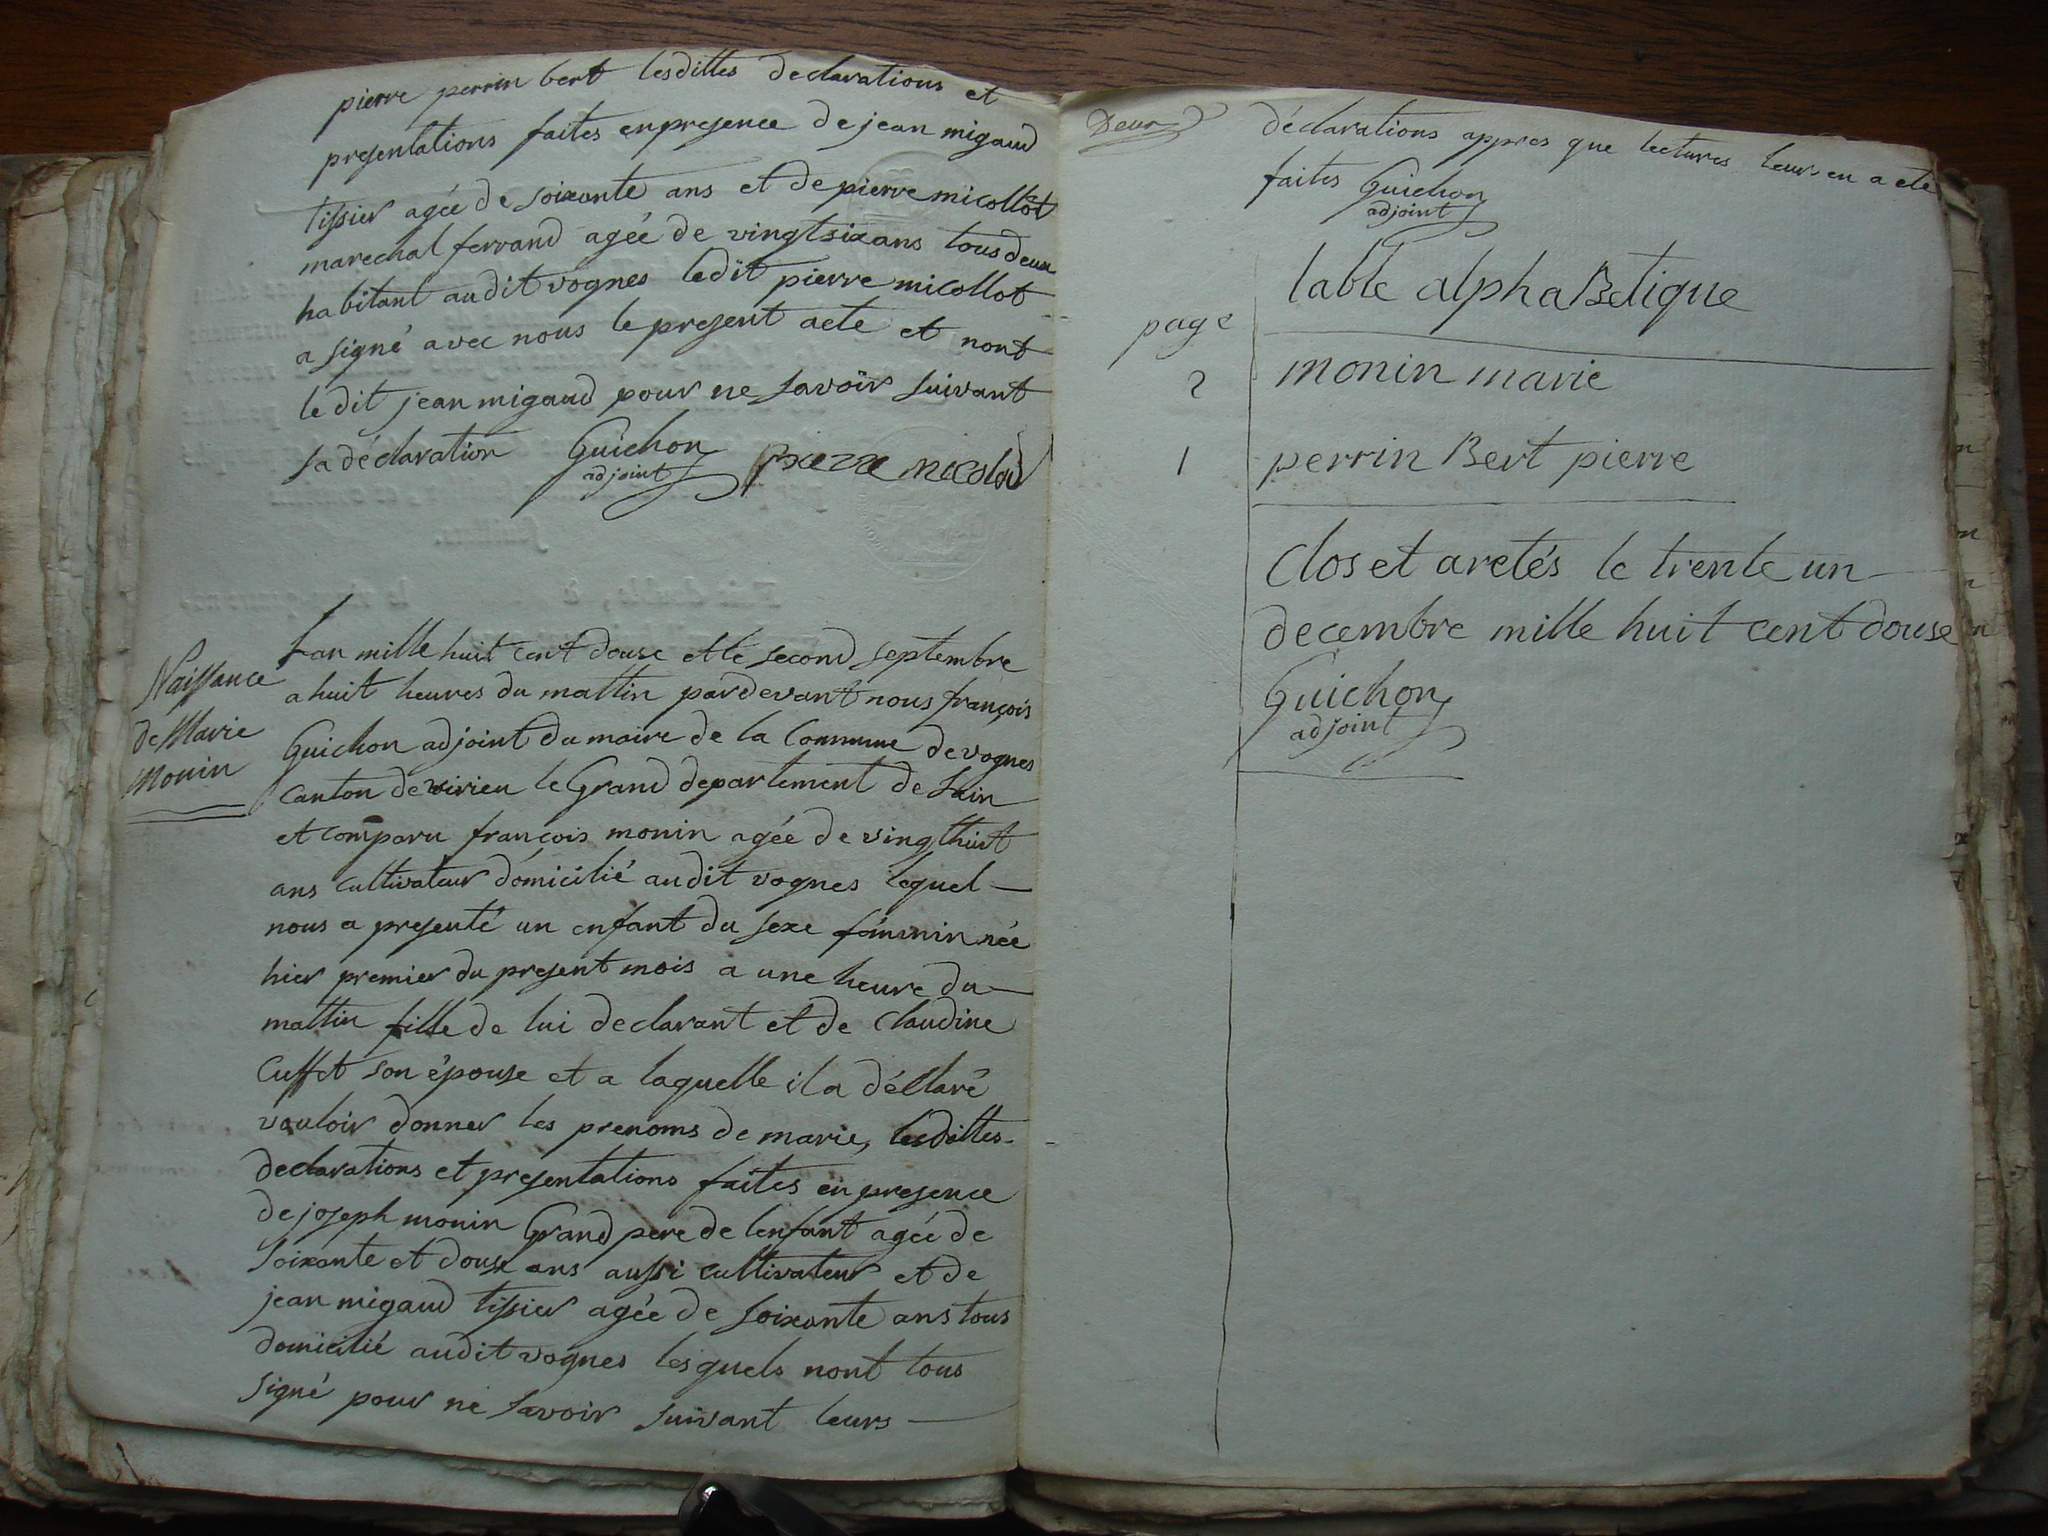 pierre perrin bert lesdittes declarations et
presentations faites enpresence de jean migaud
tissier agée de soixante ans et de pierre micollot
marechal ferrand agée de vingtsix ans tous deux
habitant audit vognes ledit pierre micollot
a signé avec nous le present acte et nont
le dit jean migaud pour ne savoir suivant
sa déclaration Guichon pierre micolod
adjoint
Naissance
de Marie
Monin
Lan mille huit cent douse et le second septembre
a huit heures du mattin pardevant nous françois
Guichon adjoint du maire de la Commune de vognes
canton de virieu le Grand departement de Lain
et comparu françois monin agée de vingthuit
ans cultivateur domicilié audit vognes lequel
nous a presenté un enfant du sexe féminin née
hier premier du present mois a une heure du
mattin fille de lui declarant et de Claudine
Cuffet son épouse et a laquelle il a déclaré
vouloir donner les prenoms de marie, lesdittes
declarations et presentations faites en presence
de joseph monin Grand pere de lenfant agée de
soixante et douse ans aussi cultivateur et de
jean migaud tissier agée de soixante ans tous
domicilié audit vognes lesquels nont tous
signé pour ne savoir suivant leurs
Deux
déclarations appres que lectures leur en a eté
faites Guichon
adjoint
table alphaBetique
page
2 monin marie
1 perrin Bert pierre
Clos et aretés le trente un
decembre mille huit cent douse
Guichon
adjoint